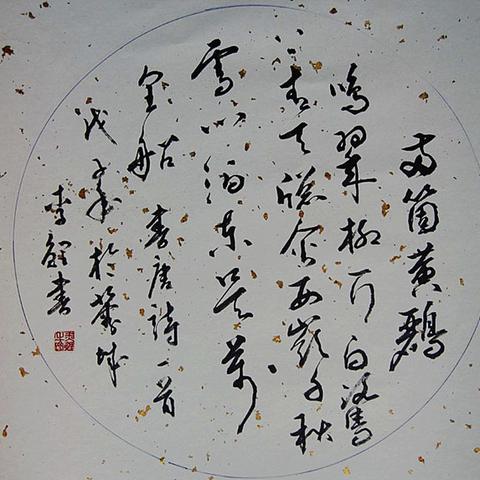 两箇黄鸝
鳴翠柳一行白鷺
上青天窗含西嶺千秋
雪門泊東吴萬
里船 書唐詩一首
戊子 於蓉城
李 書